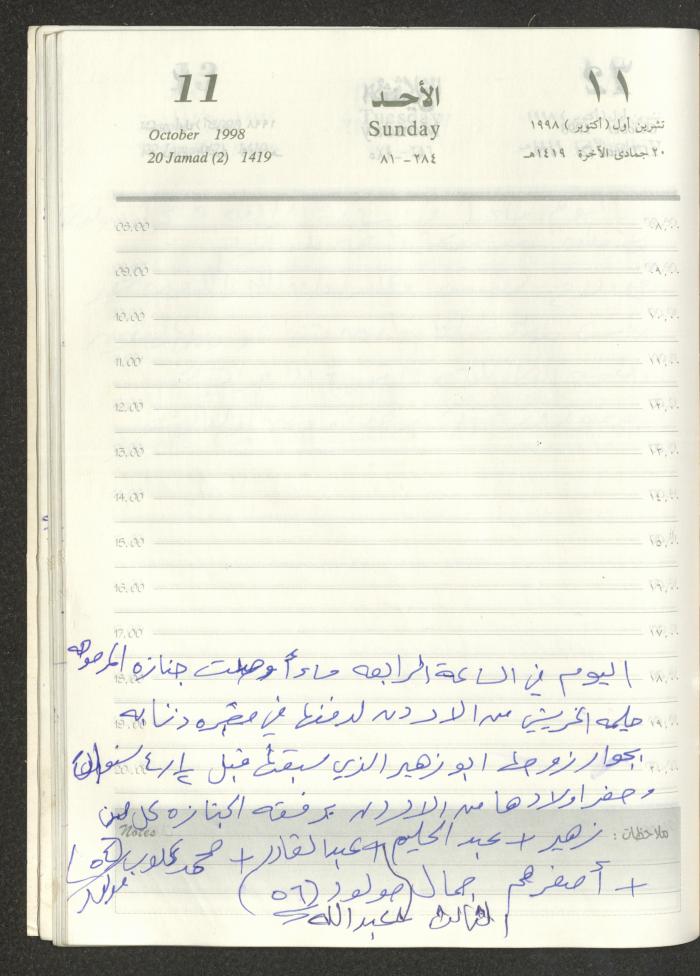 11
الأحد
١١
October 1998
Sunday
تشرين أول (أكتوبر) ١٩٩٨
20 Jamad (2) 1419
٢٨٤-٨١
٢٠ جمادى الآخرة ١٤١٩هـ
08.00 ٠٨.٠٠
09.00 ٠٩.٠٠
10.00 ١٠.٠٠
11.00 ١١.٠٠
12.00 ١٢.٠٠
13.00 ١٣.٠٠
14.00 ١٤.٠٠
15.00 ١٥.٠٠
16.00 ١٦.٠٠
17.00 ١٧.٠٠
اليوم في الساعة الرابعه مساءاً وصلت جنازه المرحومه
18.00 ١٨.٠٠
حليمه من الاردن لدفنها في مقبره ذنابه
19.00 ١٩.٠٠
بجوار زوجها ابو زهير الذي سبقها قبل ٤ ١/٢ سنوات
20.00 ٢٠.٠٠
وحضر اولادها من الاردن برفقه الجنازه كل من
Notes ملاحظات :
زهير + عبد الحليم + عبدالقادر + محمد
+ أصغرهم جمال (مولود ٥٦)
الثالث عبدالله